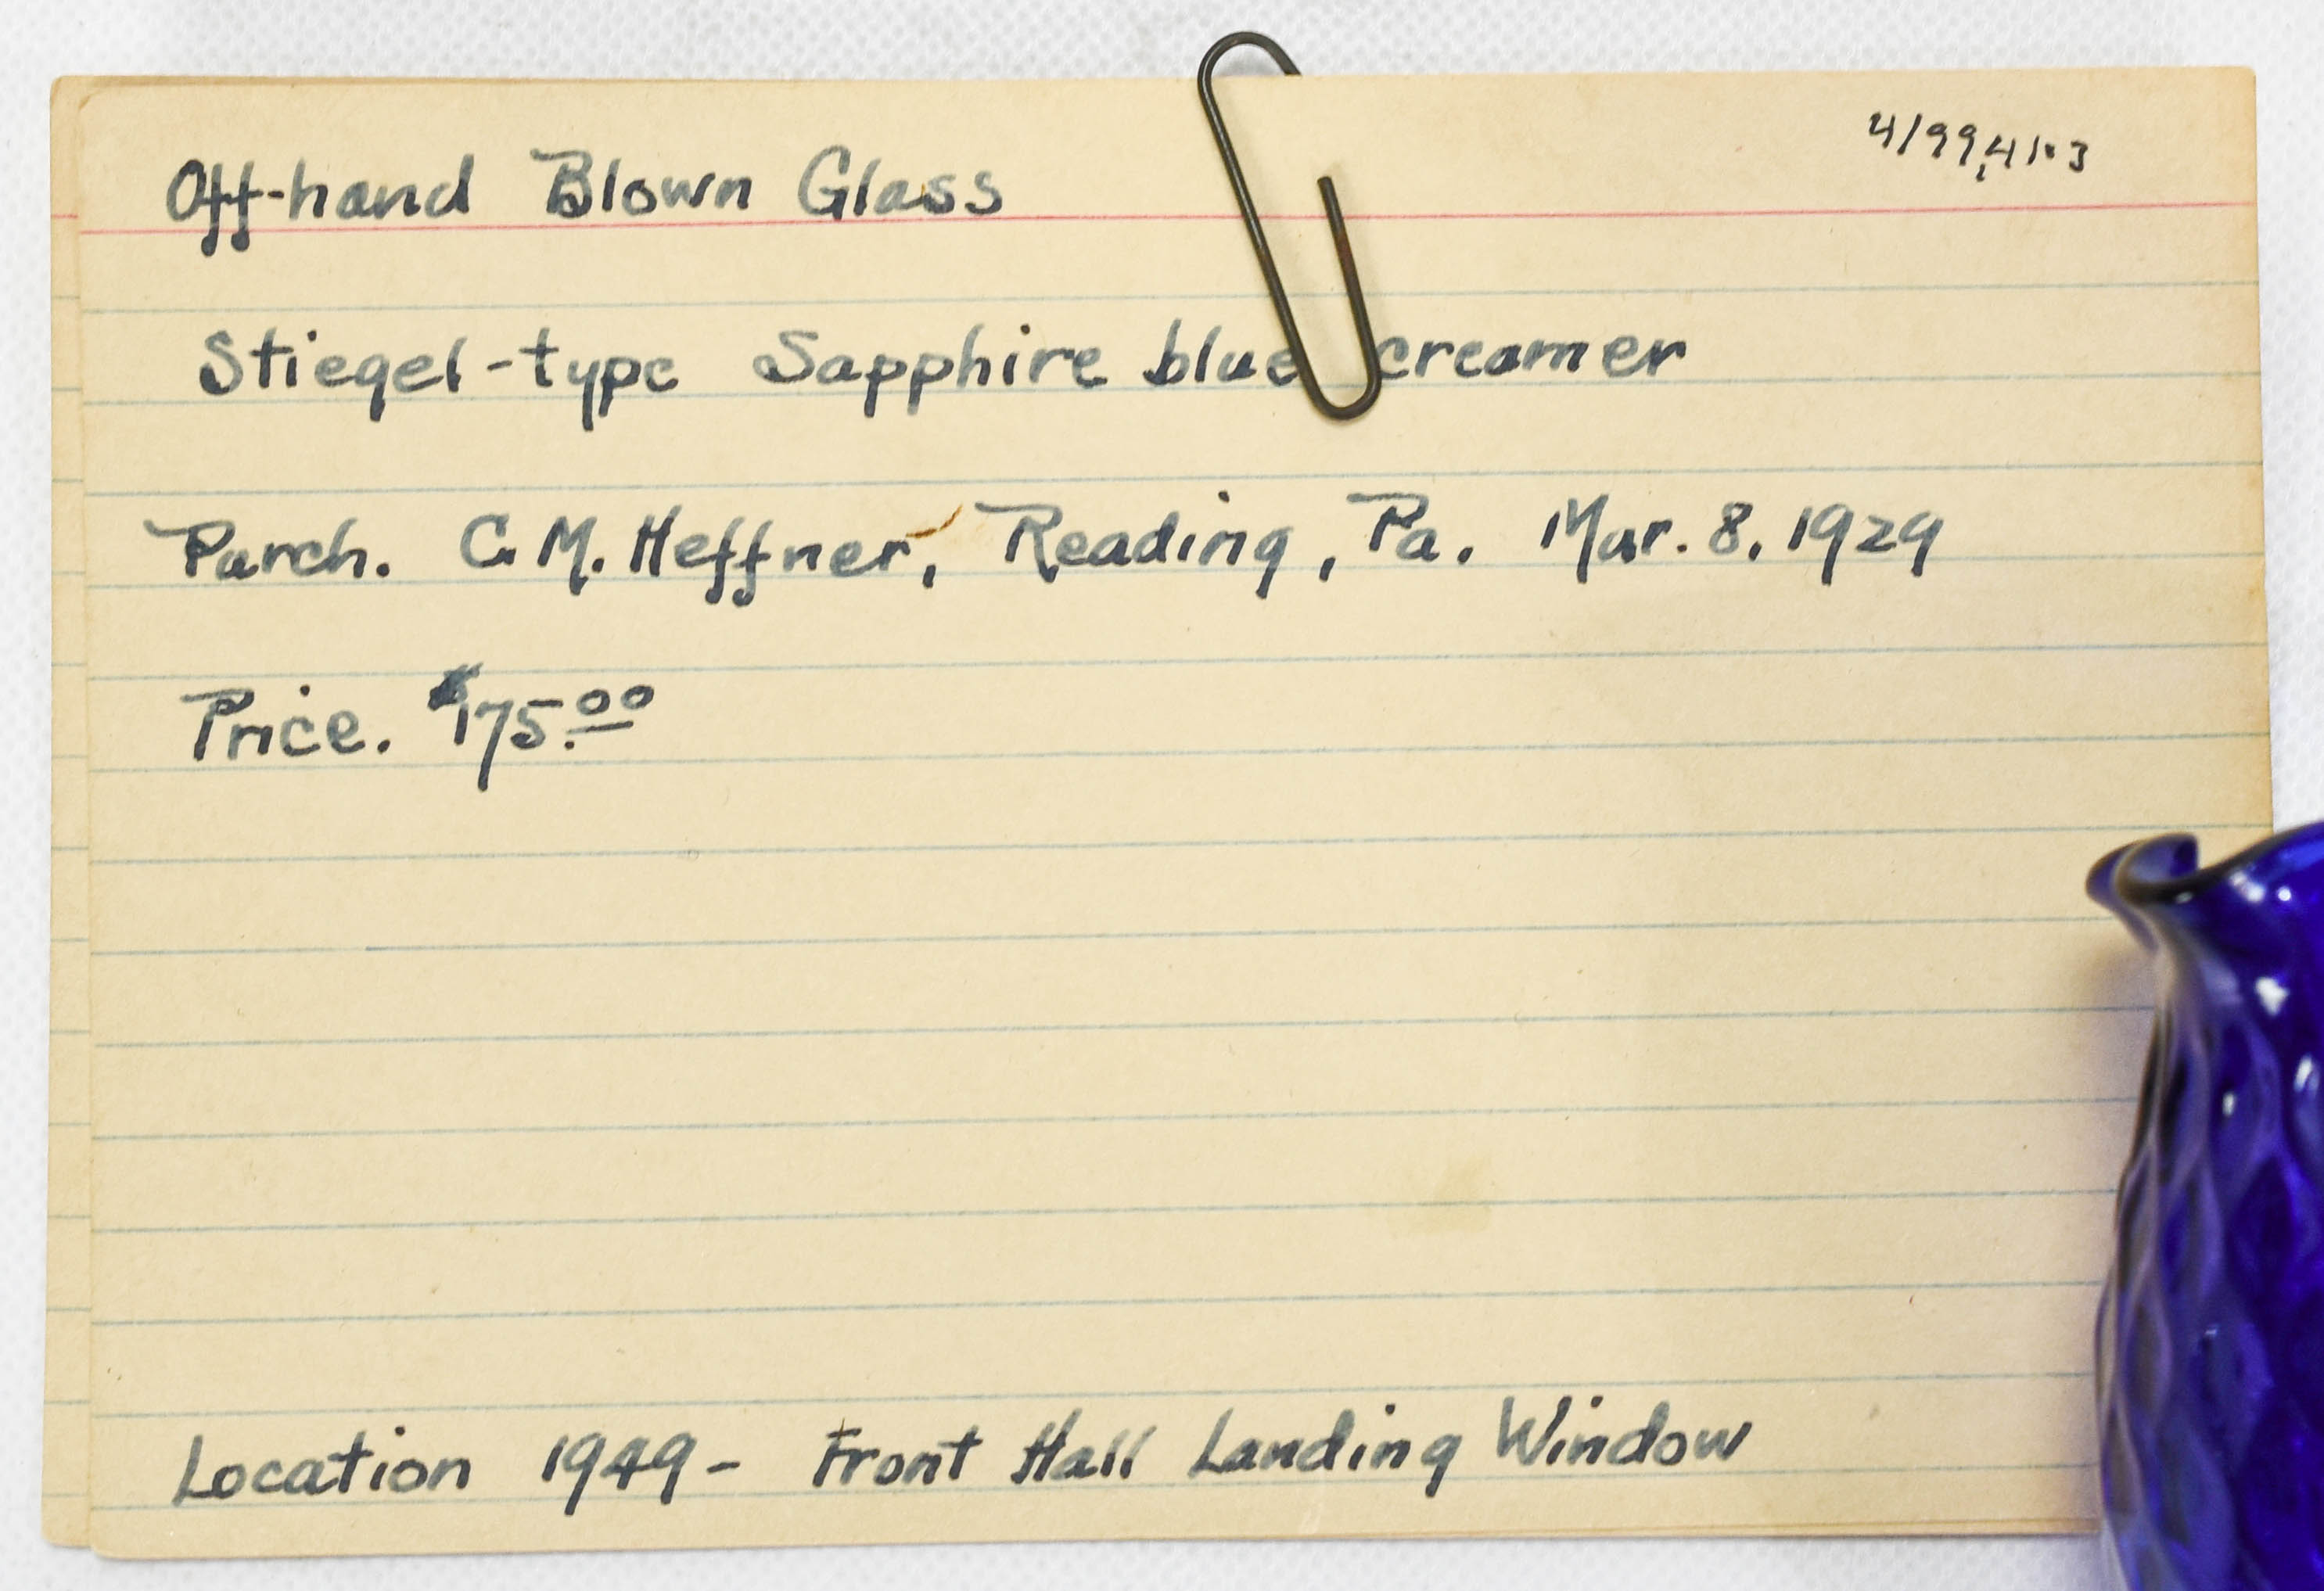 4/99,41.3
Off-hand Blown Glass
Stiegel-type Sapphire blue creamer
Purch. C. M. Heffner, Reading, Pa. Mar. 8. 1929
Price. $175.00
Location 1949 - Front Hall Landing Window